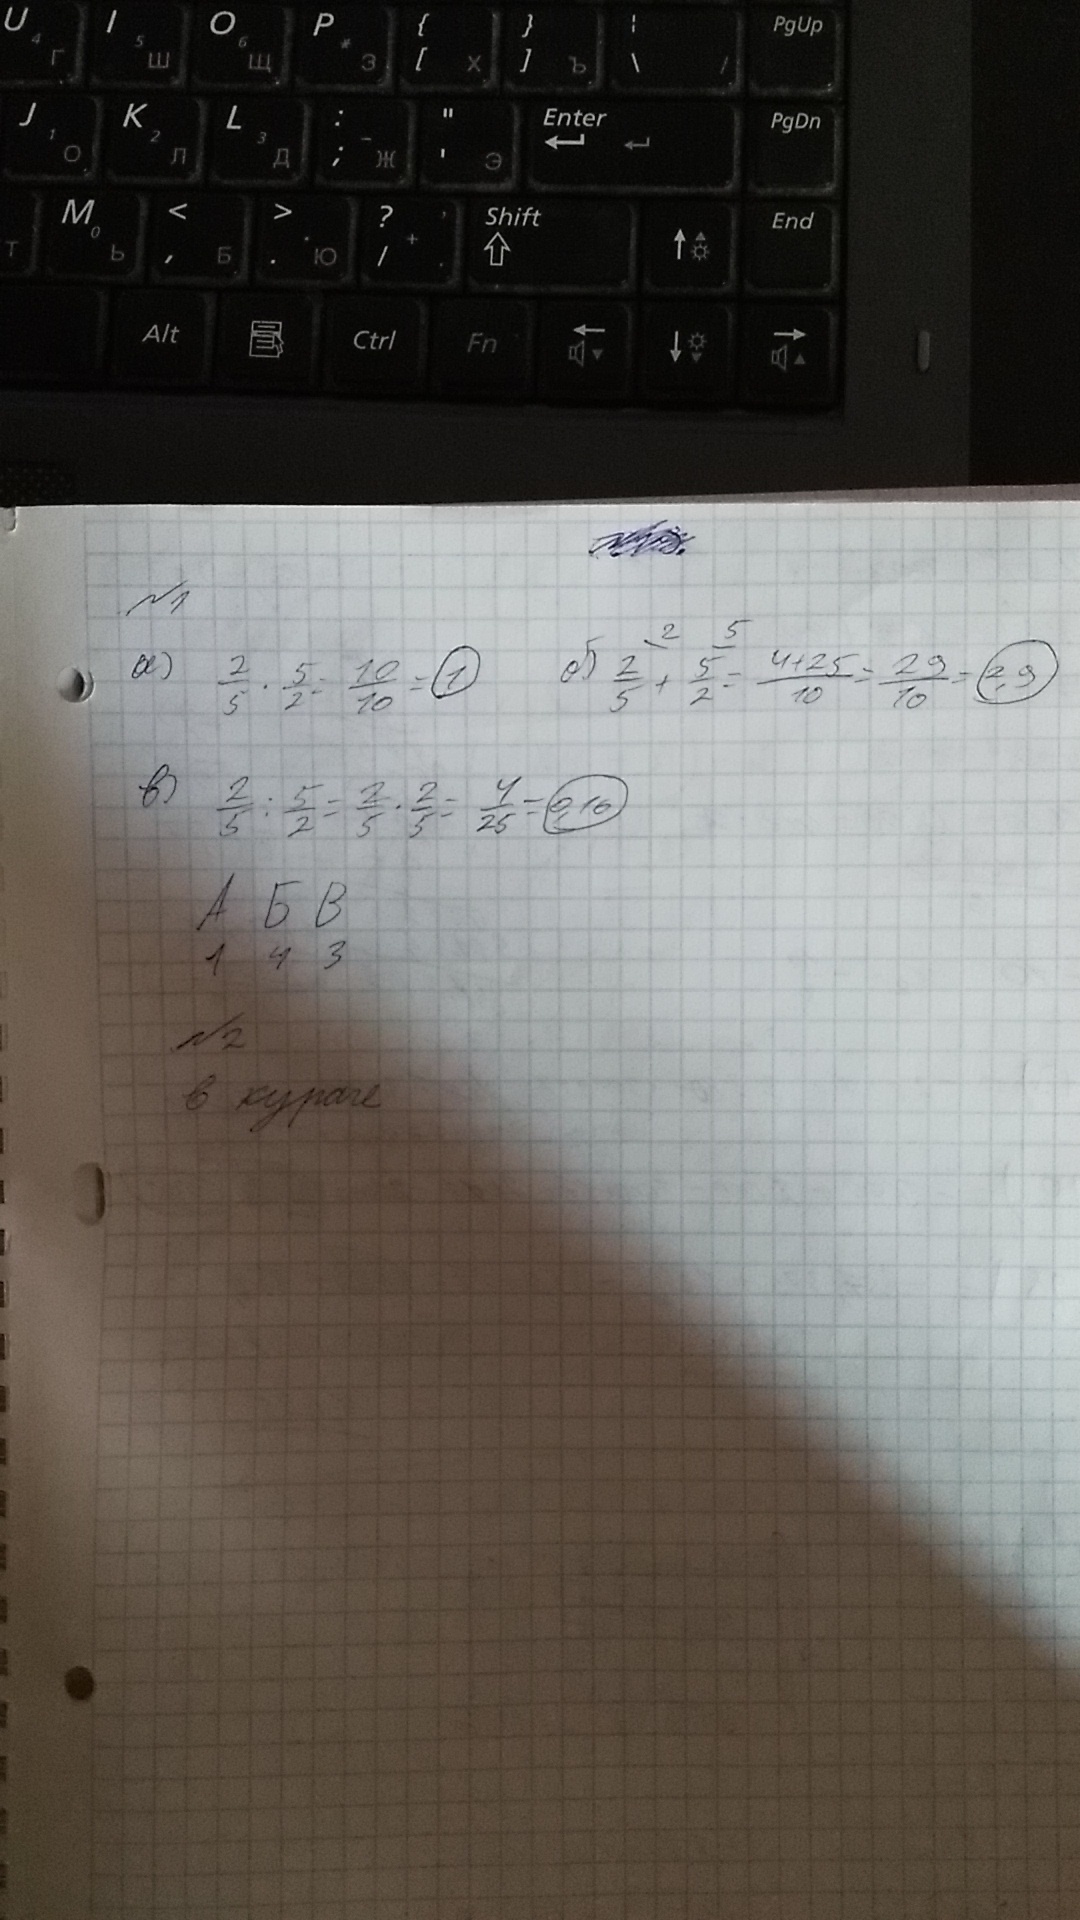 U 4 Г I 5 Ш O 6 Щ P * З { [ Х } ] Ъ ¦ \ / PgUp
J 1 О K 2 Л L 3 Д : ; - Ж " ' Э Enter PgDn
Т M 0 Ь < , Б > . Ю ? / + Shift End
Alt Ctrl Fn
№1
а) 2/5 · 5/2 = 10/10 = 1 б) 2/5 ² + 5/2 ⁵ = 4+25/10 = 29/10 = 2,9
в) 2/5 : 5/2 = 2/5 · 2/5 = 4/25 = 0,16
А Б В
1 4 3
№2
в кураге